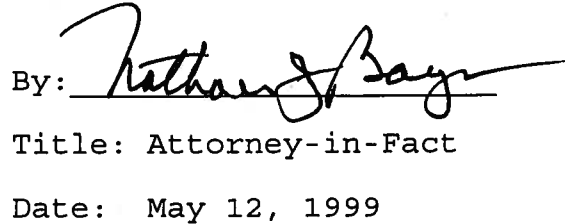 By: Nathan J Bayer
Title: Attorney-in-Fact
Date: May 12, 1999